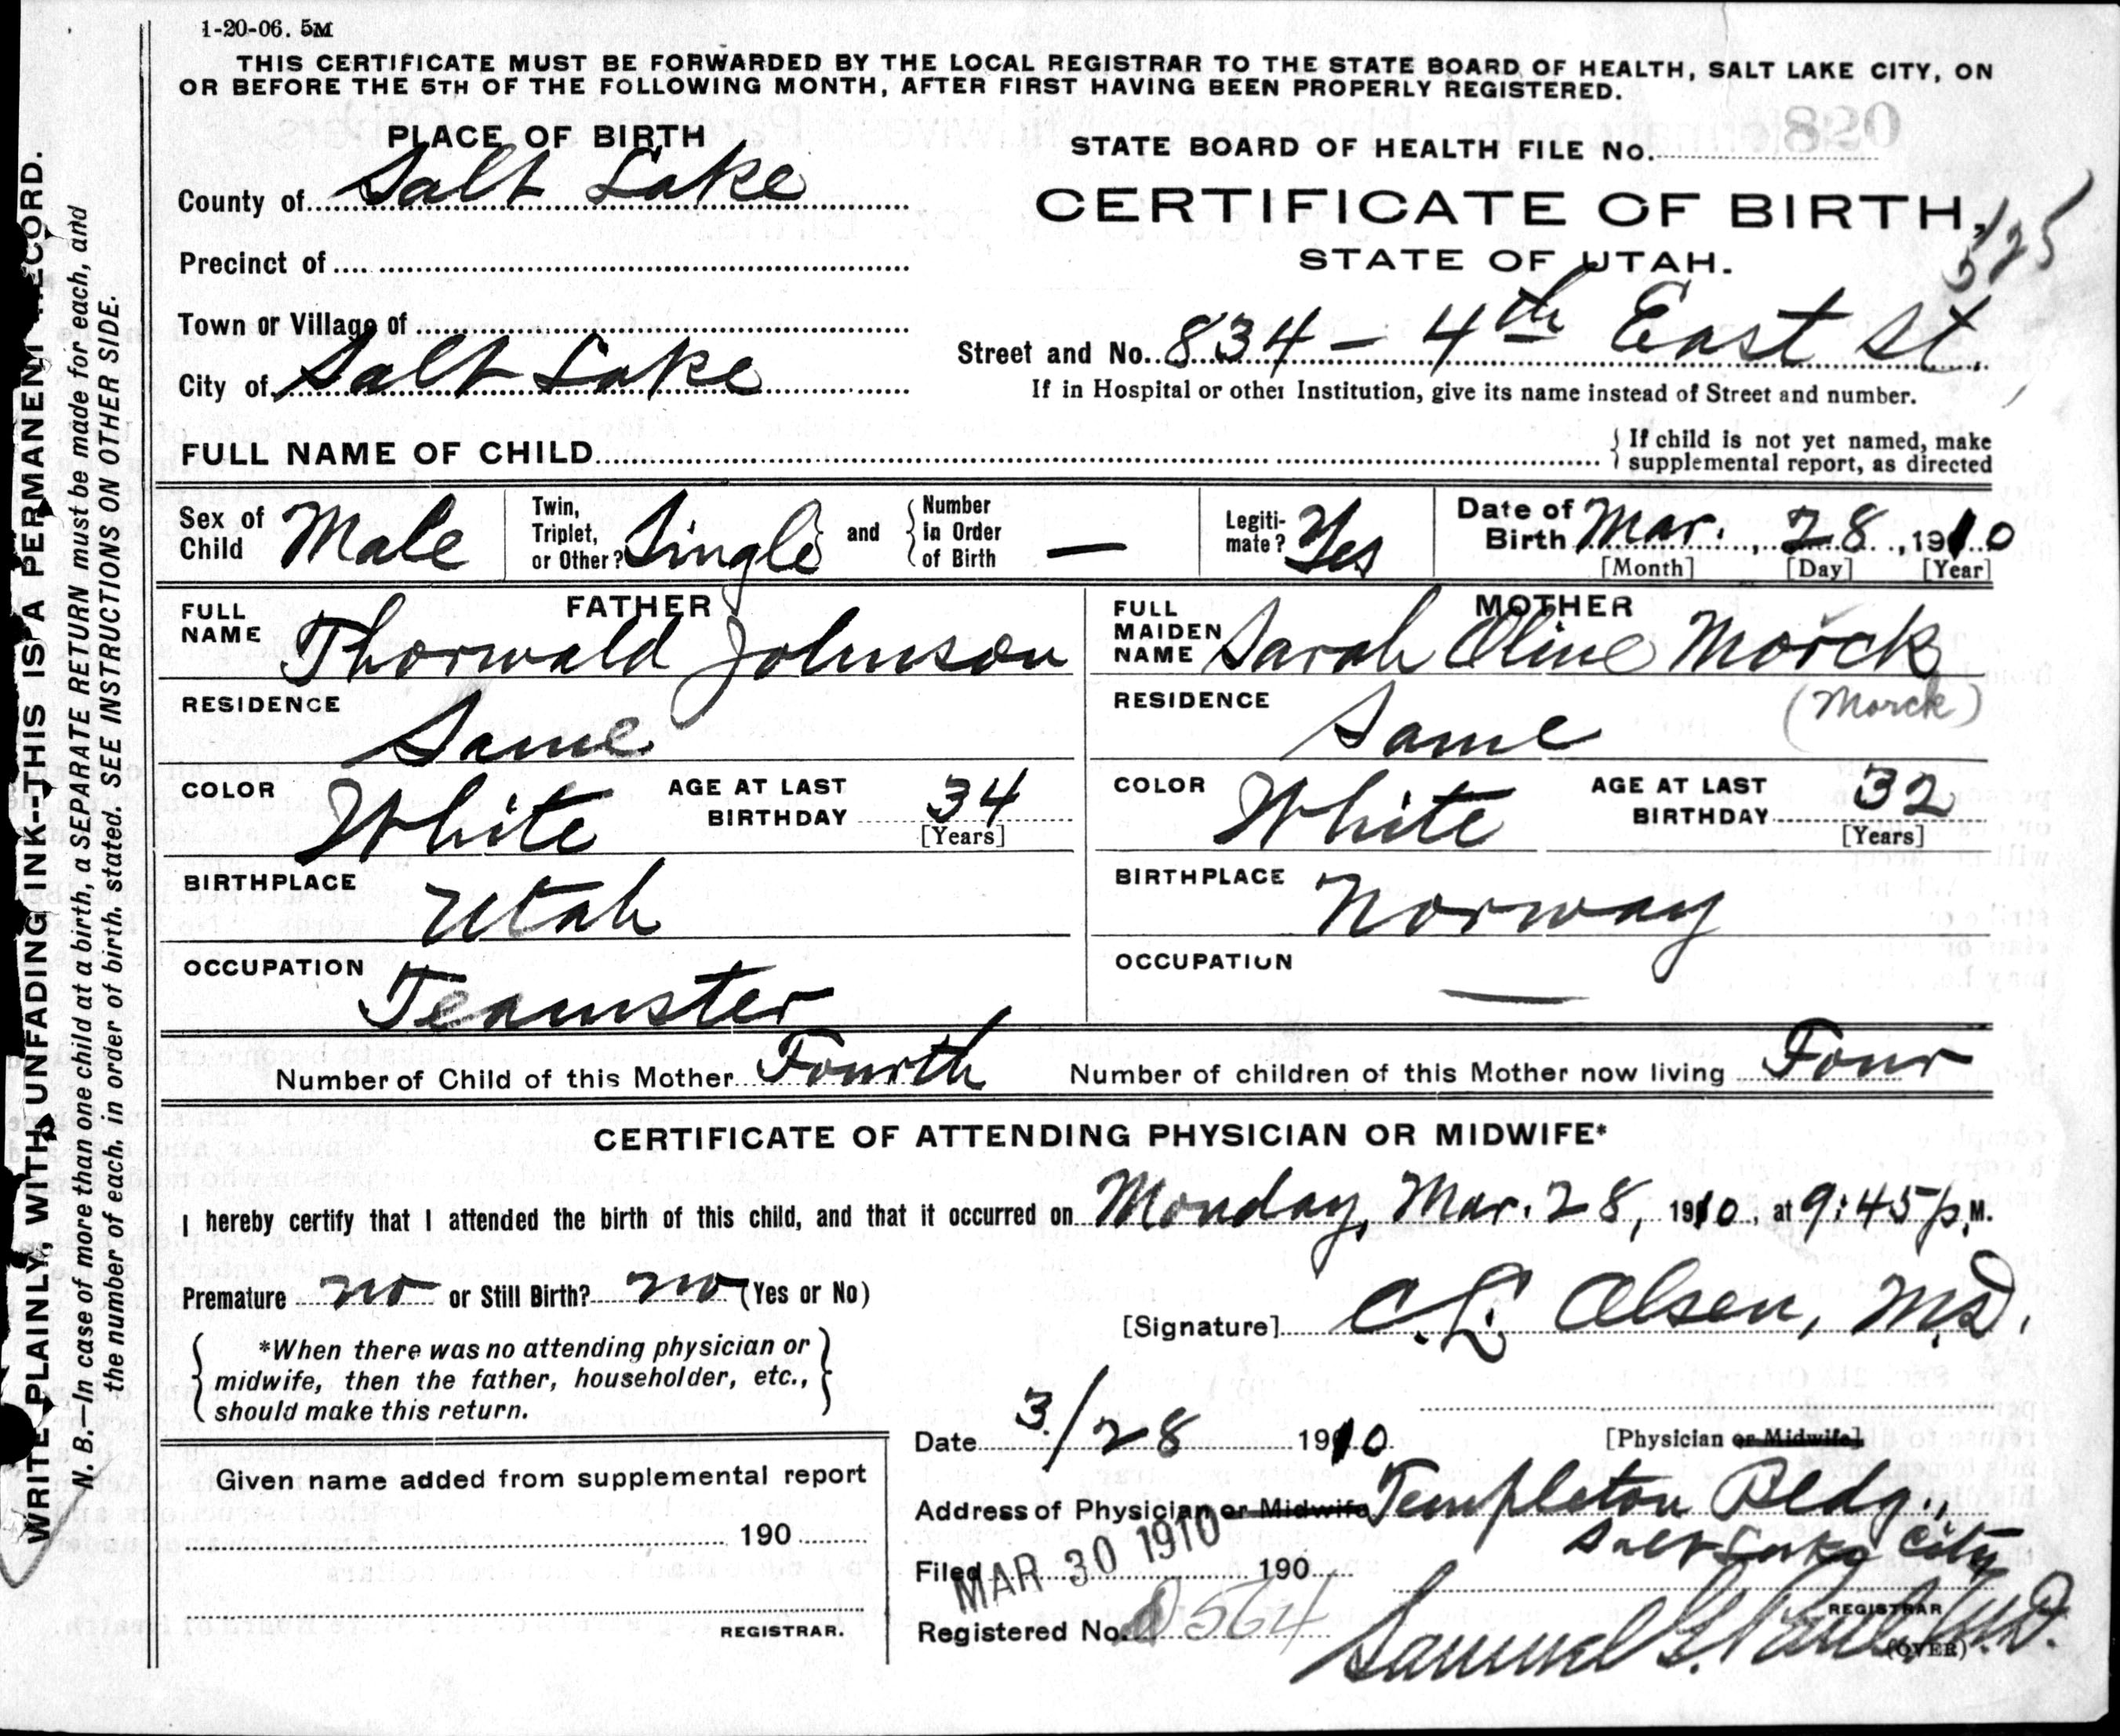 1-20-06. 5M
THIS CERTIFICATE MUST BE FORWARDED BY THE LOCAL REGISTRAR TO THE STATE BOARD OF HEALTH, SALT LAKE CITY, ON
OR BEFORE THE 5TH OF THE FOLLOWING MONTH, AFTER FIRST HAVING BEEN PROPERLY REGISTERED.
PLACE OF BIRTH
County of Salt Lake
Precinct of
Town or Village of
City of Salt Lake
STATE BOARD OF HEALTH FILE No.
CERTIFICATE OF BIRTH,
STATE OF UTAH.
Street and No. 834 - 4th East St.
If in Hospital or other Institution, give its name instead of Street and number.
FULL NAME OF CHILD
{ If child is not yet named, make
supplemental report, as directed
Sex of Child Male
Twin, Triplet, or Other? Single } and { Number in Order of Birth —
Legiti-mate? Yes
Date of Birth Mar. 28, 1910
[Month] [Day] [Year]
FATHER
FULL NAME Thorwald Johnson
RESIDENCE Same
COLOR White AGE AT LAST BIRTHDAY 34
[Years]
BIRTHPLACE Utah
OCCUPATION Teamster
MOTHER
FULL MAIDEN NAME Sarah Oline Morck
(Morck)
RESIDENCE Same
COLOR White AGE AT LAST BIRTHDAY 32
[Years]
BIRTHPLACE Norway
OCCUPATION —
Number of Child of this Mother Fourth Number of children of this Mother now living Four
CERTIFICATE OF ATTENDING PHYSICIAN OR MIDWIFE*
I hereby certify that I attended the birth of this child, and that it occurred on Monday, Mar. 28, 1910, at 9:45 p. M.
Premature no or Still Birth? no (Yes or No)
{ *When there was no attending physician or }
midwife, then the father, householder, etc.,
should make this return.
[Signature] C. L. Olsen, M.D.
[Physician or Midwife]
Date 3/28 1910
Address of Physician or Midwife Templeton Bldg.,
Salt Lake City
Filed MAR 30 1910 190
Registered No. 564
Samuel G. M.D.
REGISTRAR
(OVER)
Given name added from supplemental report
190
REGISTRAR.
WRITE PLAINLY, WITH UNFADING INK--THIS IS A PERMANENT RECORD.
N. B.—In case of more than one child at a birth, a SEPARATE RETURN must be made for each, and
the number of each, in order of birth, stated. SEE INSTRUCTIONS ON OTHER SIDE.